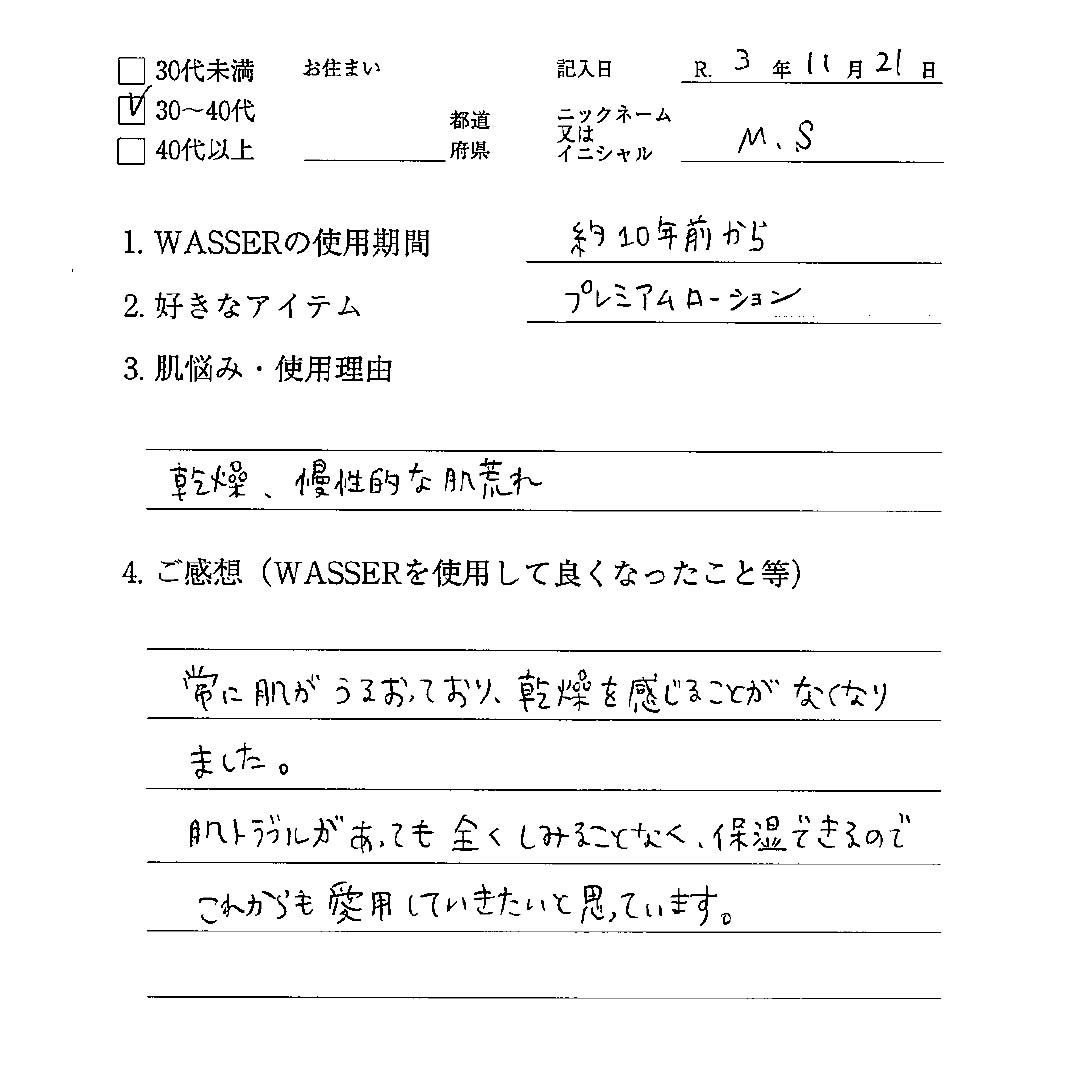 30代未満 お住まい 記入日 R. 3 年 11 月 21 日
☑ 30〜40代 都道 ニックネーム
又は M.S
40代以上 府県 イニシャル
1. WASSERの使用期間 約10年前から
2. 好きなアイテム プレミアムローション
3. 肌悩み・使用理由
乾燥、慢性的な肌荒れ
4. ご感想（WASSERを使用して良くなったこと等）
常に肌がうるおっており、乾燥を感じることがなくなり
ました。
肌トラブルがあっても全くしみることなく、保湿できるので
これからも愛用していきたいと思っています。